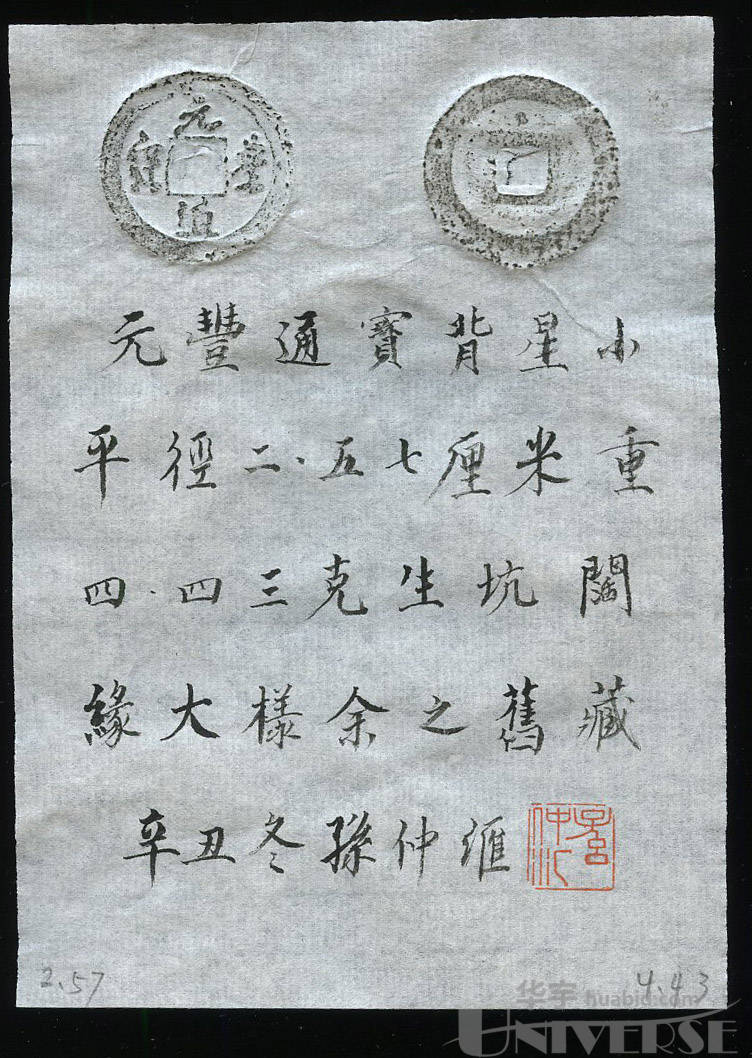 元豐通寶
元豐通寶背星小
平徑二.五七厘米重
四.四三克生坑闊
緣大樣余之舊藏
辛丑冬孫仲匯
2.57
4.43
华宇 huabid.com
UNIVERSE